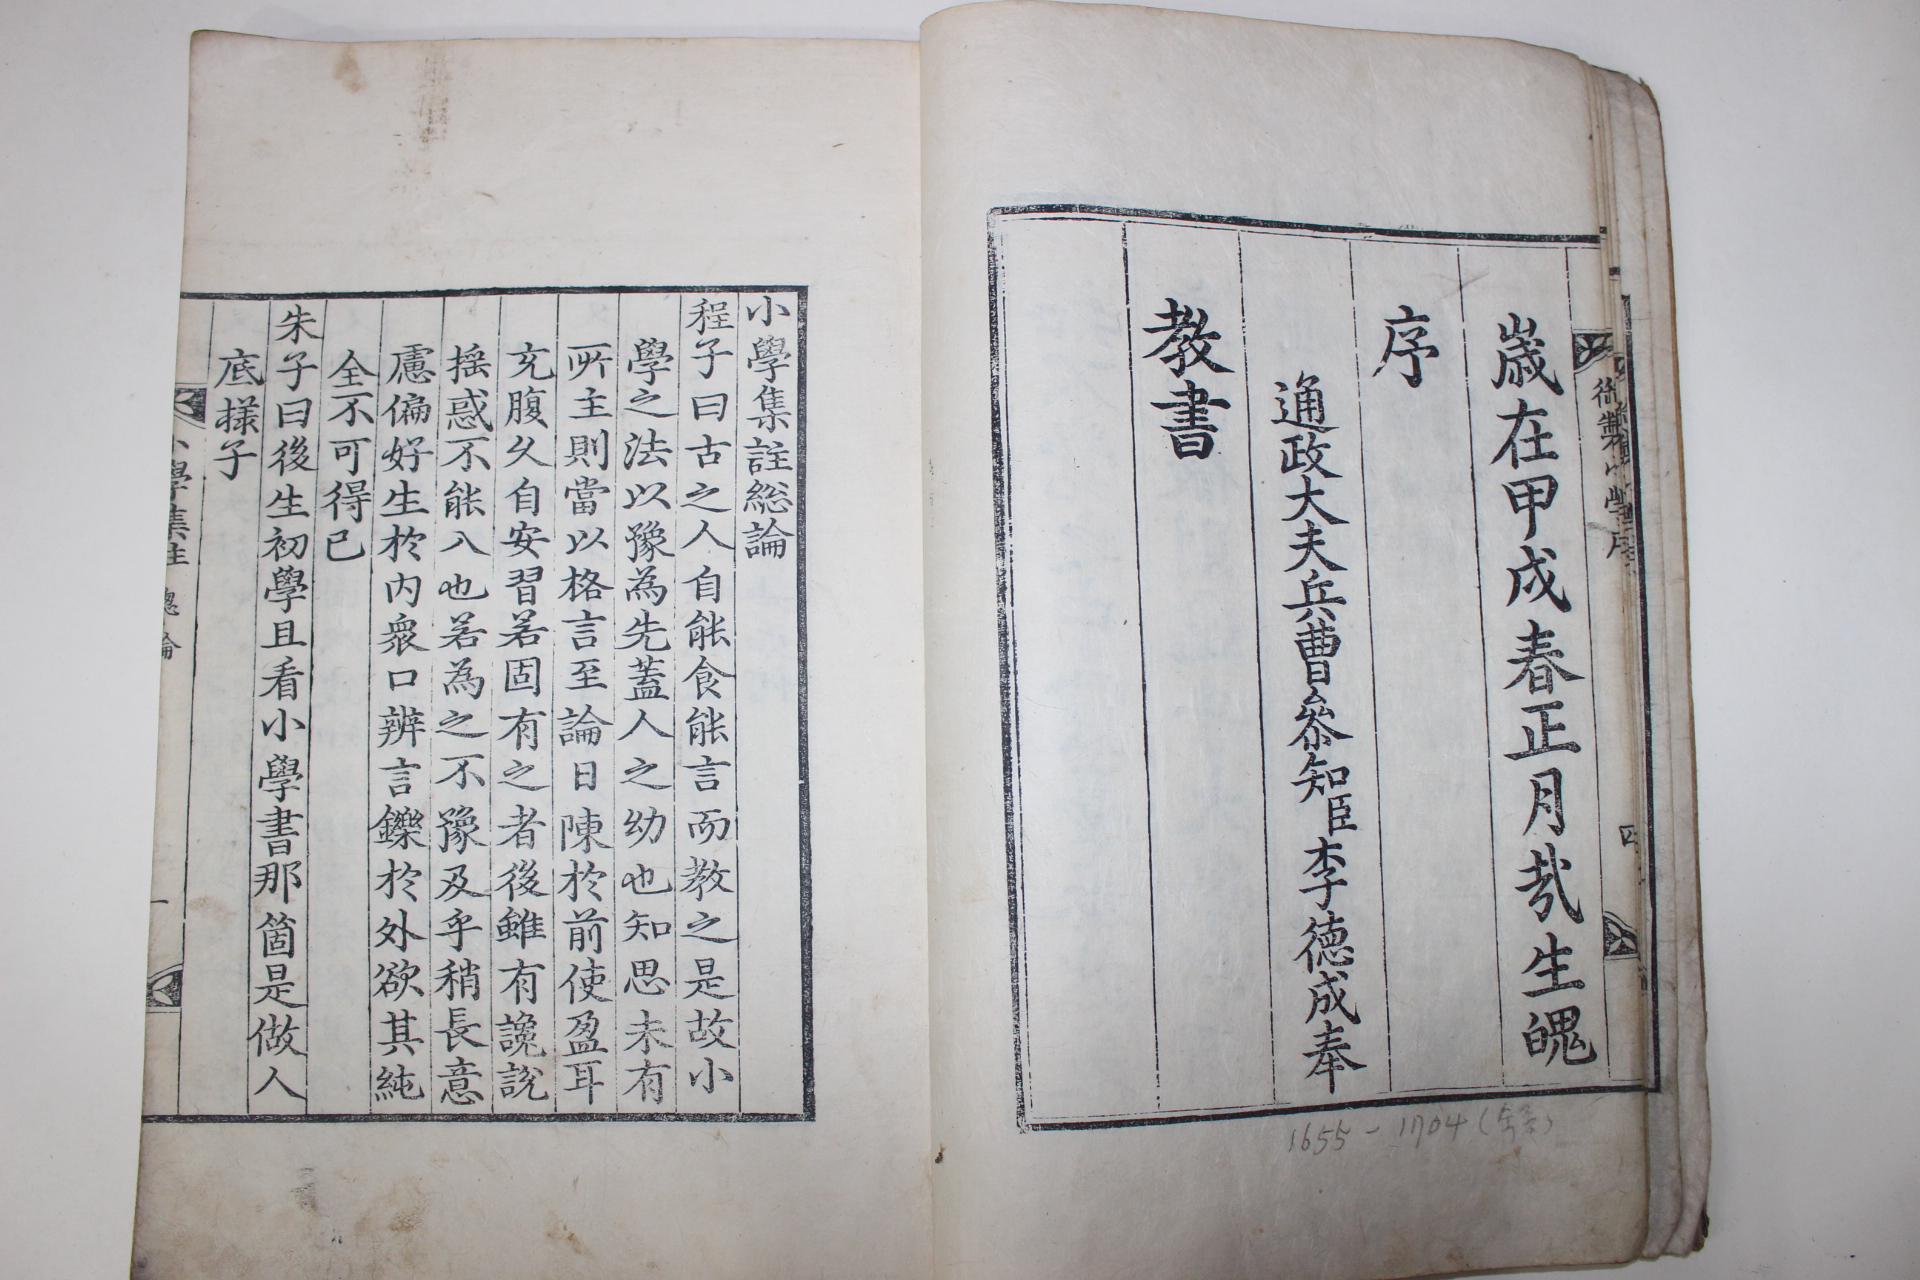 歲在甲戌春正月哉生魄
序
通政大夫兵曹叅知臣李德成奉
教書
1655-1704(숙종)
四
小學集註総論
程子曰古之人自能食能言而教之是故小
學之法以豫為先蓋人之幼也知思未有
所主則當以格言至論日陳於前使盈耳
充腹久自安習若固有之者後雖有讒說
揺惑不能入也若為之不豫及乎稍長意
慮偏好生於内衆口辨言鑠於外欲其純
全不可得已
朱子曰後生初學且看小學書那箇是做人
底樣子
小學集註 總論 一